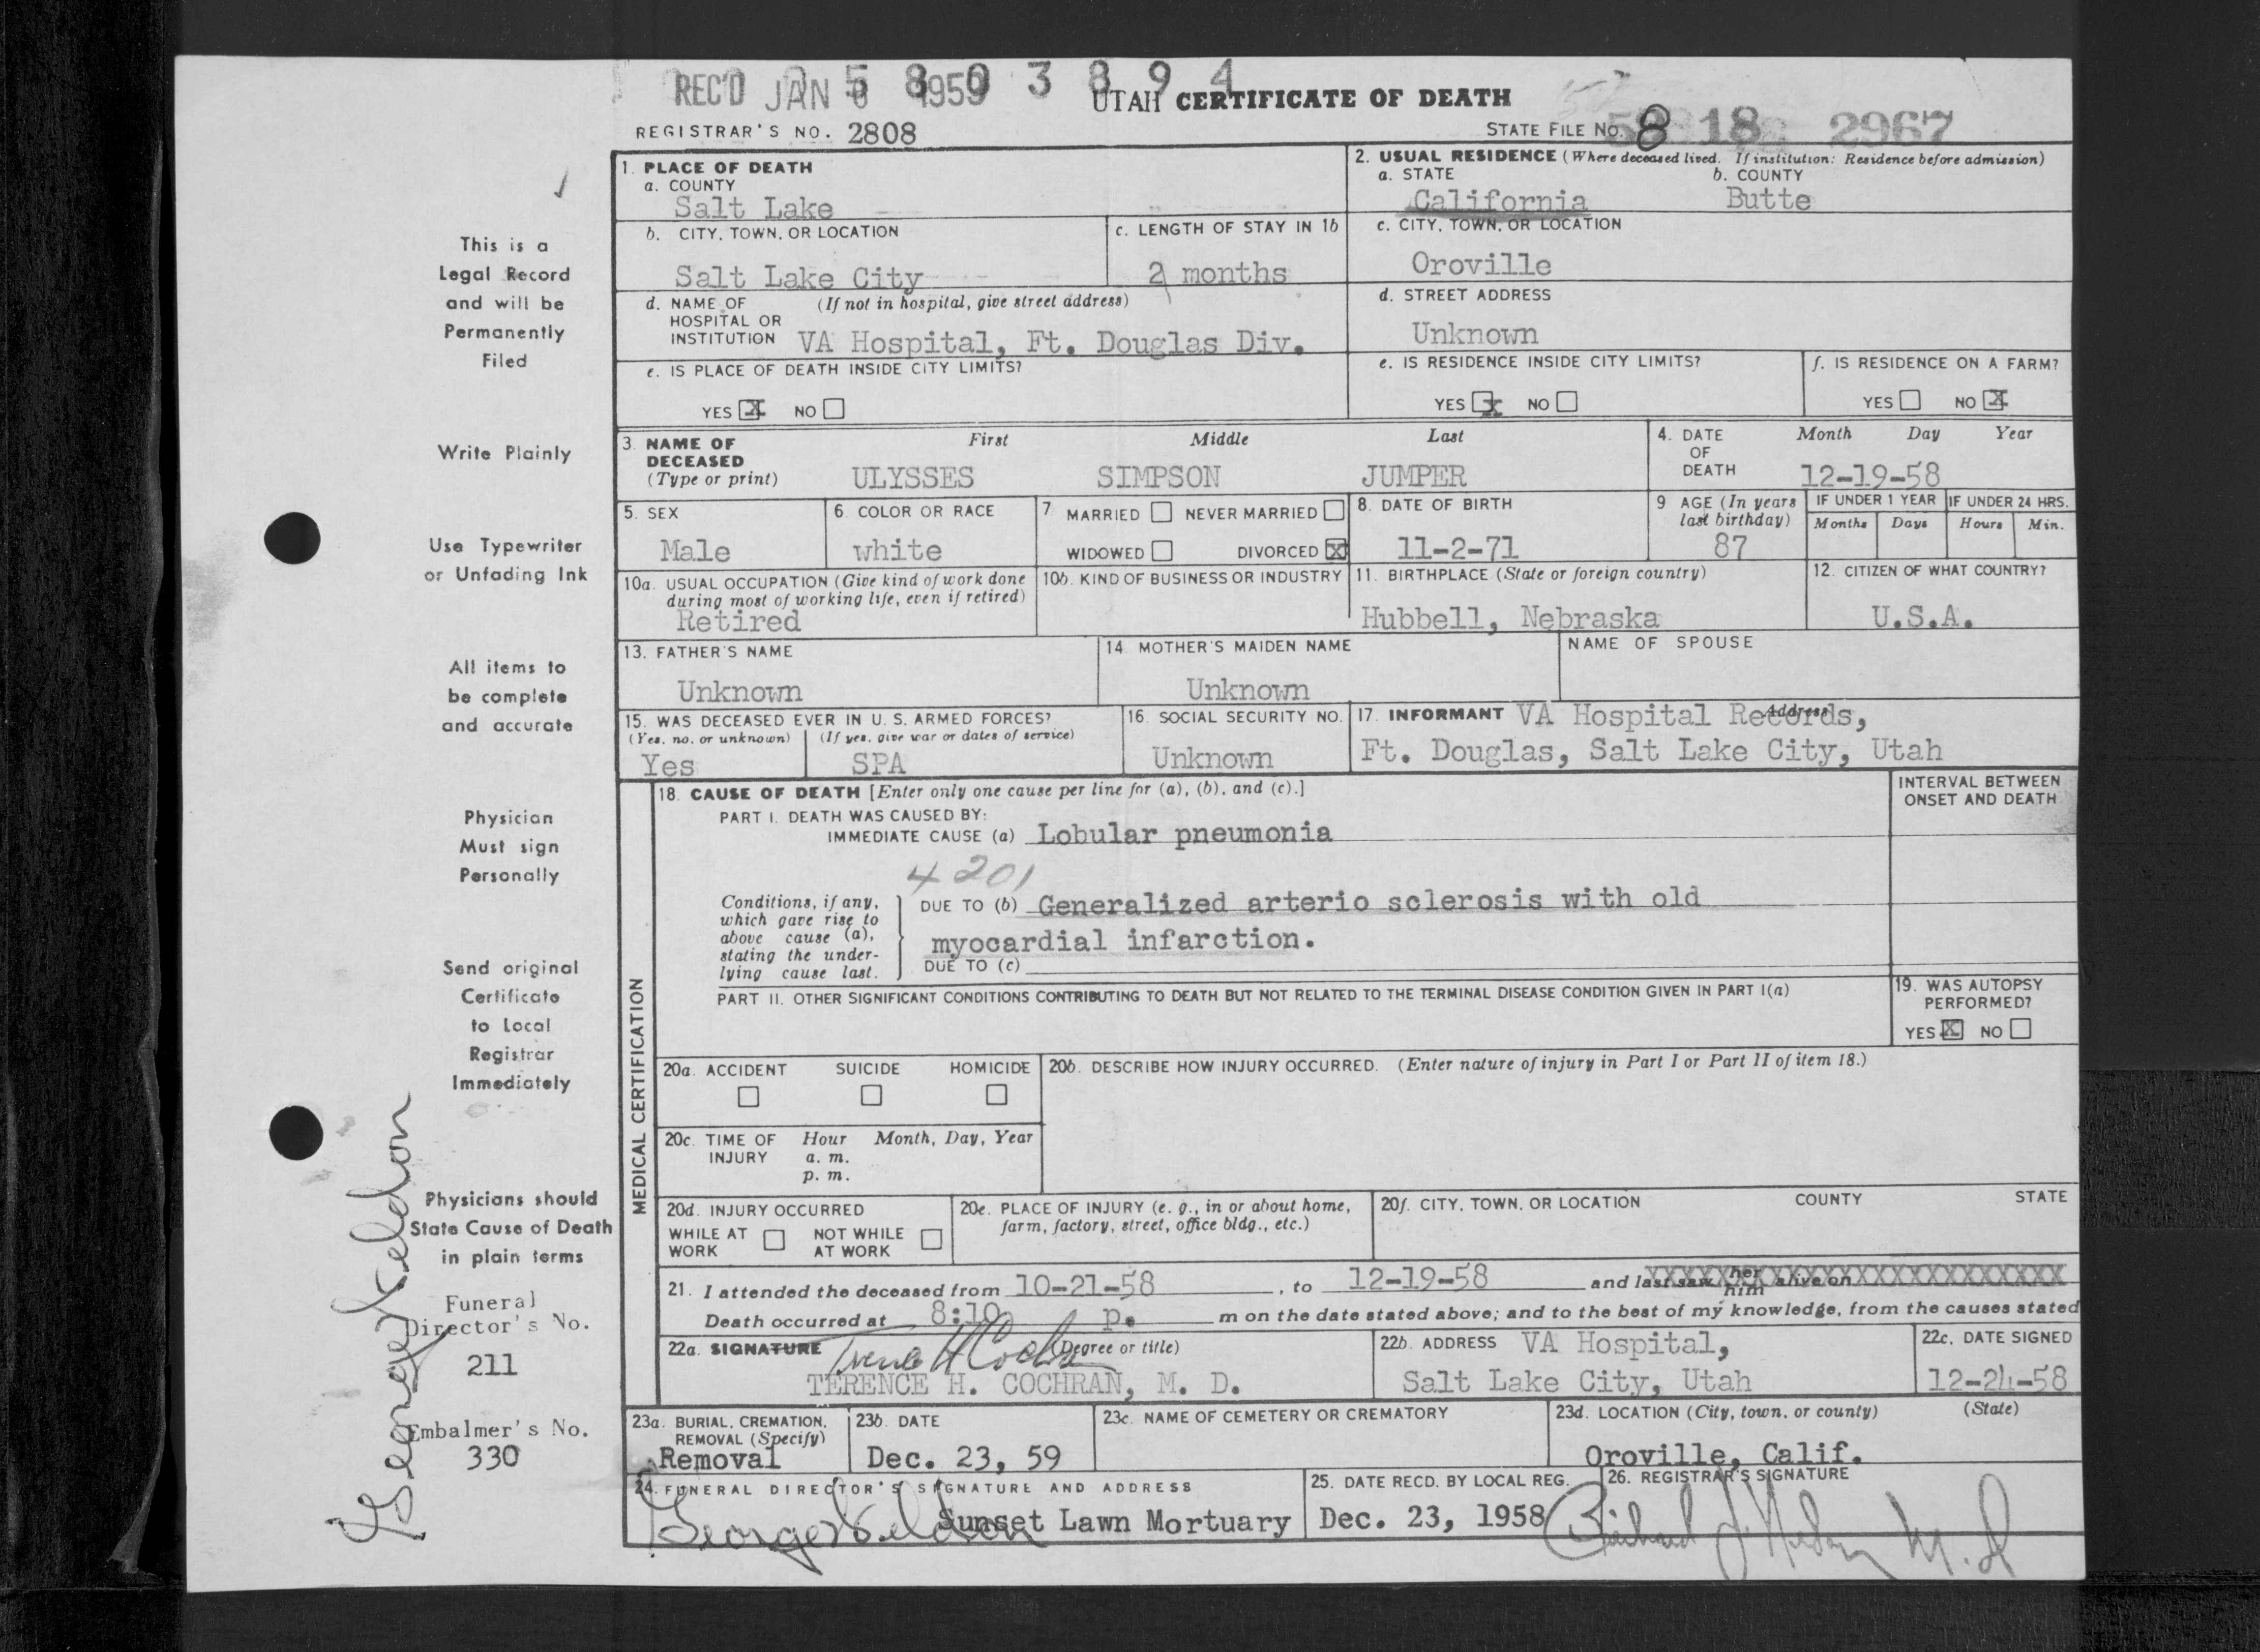 REC'D JAN 6 1959
5803894
UTAH CERTIFICATE OF DEATH
REGISTRAR'S NO. 2808
STATE FILE No. 8 18 2967
1. PLACE OF DEATH
a. COUNTY
Salt Lake
2. USUAL RESIDENCE (Where deceased lived. If institution: Residence before admission)
a. STATE b. COUNTY
California Butte
b. CITY, TOWN, OR LOCATION
Salt Lake City
c. LENGTH OF STAY IN 1b
2 months
c. CITY, TOWN, OR LOCATION
Oroville
d. NAME OF (If not in hospital, give street address)
HOSPITAL OR
INSTITUTION VA Hospital, Ft. Douglas Div.
d. STREET ADDRESS
Unknown
e. IS PLACE OF DEATH INSIDE CITY LIMITS?
YES X NO
e. IS RESIDENCE INSIDE CITY LIMITS?
YES x NO
f. IS RESIDENCE ON A FARM?
YES NO X
3. NAME OF First Middle Last
DECEASED
(Type or print) ULYSSES SIMPSON JUMPER
4. DATE Month Day Year
OF
DEATH 12-19-58
5. SEX
Male
6. COLOR OR RACE
white
7. MARRIED NEVER MARRIED
WIDOWED DIVORCED X
8. DATE OF BIRTH
11-2-71
9. AGE (In years
last birthday)
87
IF UNDER 1 YEAR IF UNDER 24 HRS.
Months Days Hours Min.
10a. USUAL OCCUPATION (Give kind of work done
during most of working life, even if retired)
Retired
10b. KIND OF BUSINESS OR INDUSTRY
11. BIRTHPLACE (State or foreign country)
Hubbell, Nebraska
12. CITIZEN OF WHAT COUNTRY?
U.S.A.
13. FATHER'S NAME
Unknown
14. MOTHER'S MAIDEN NAME
Unknown
NAME OF SPOUSE
15. WAS DECEASED EVER IN U. S. ARMED FORCES?
(Yes, no, or unknown) (If yes, give war or dates of service)
Yes SPA
16. SOCIAL SECURITY NO.
Unknown
17. INFORMANT VA Hospital Records, Address
Ft. Douglas, Salt Lake City, Utah
MEDICAL CERTIFICATION
18. CAUSE OF DEATH [Enter only one cause per line for (a), (b), and (c).]
INTERVAL BETWEEN
ONSET AND DEATH
PART I. DEATH WAS CAUSED BY:
IMMEDIATE CAUSE (a) Lobular pneumonia
4201
Conditions, if any,
which gave rise to
above cause (a),
stating the under-
lying cause last.
DUE TO (b) Generalized arterio sclerosis with old
myocardial infarction.
DUE TO (c)
PART II. OTHER SIGNIFICANT CONDITIONS CONTRIBUTING TO DEATH BUT NOT RELATED TO THE TERMINAL DISEASE CONDITION GIVEN IN PART I(a)
19. WAS AUTOPSY
PERFORMED?
YES X NO
20a. ACCIDENT SUICIDE HOMICIDE
20b. DESCRIBE HOW INJURY OCCURRED. (Enter nature of injury in Part I or Part II of item 18.)
20c. TIME OF Hour Month, Day, Year
INJURY a. m.
p. m.
20d. INJURY OCCURRED
WHILE AT NOT WHILE
WORK AT WORK
20e. PLACE OF INJURY (e. g., in or about home,
farm, factory, street, office bldg., etc.)
20f. CITY, TOWN, OR LOCATION COUNTY STATE
21. I attended the deceased from 10-21-58, to 12-19-58 and last saw her him alive on XXXXXXXXXXXXXXXXXXXXXXXXXX
Death occurred at 8:10 p. m on the date stated above; and to the best of my knowledge, from the causes stated
22a. SIGNATURE (Degree or title)
TERENCE H. COCHRAN, M. D.
22b. ADDRESS VA Hospital,
Salt Lake City, Utah
22c. DATE SIGNED
12-24-58
23a. BURIAL, CREMATION,
REMOVAL (Specify)
Removal
23b. DATE
Dec. 23, 59
23c. NAME OF CEMETERY OR CREMATORY
23d. LOCATION (City, town, or county) (State)
Oroville, Calif.
24. FUNERAL DIRECTOR'S SIGNATURE AND ADDRESS
Sunset Lawn Mortuary
25. DATE RECD. BY LOCAL REG.
Dec. 23, 1958
26. REGISTRAR'S SIGNATURE
This is a
Legal Record
and will be
Permanently
Filed
Write Plainly
Use Typewriter
or Unfading Ink
All items to
be complete
and accurate
Physician
Must sign
Personally
Send original
Certificate
to Local
Registrar
Immediately
Physicians should
State Cause of Death
in plain terms
Funeral
Director's No.
211
Embalmer's No.
330